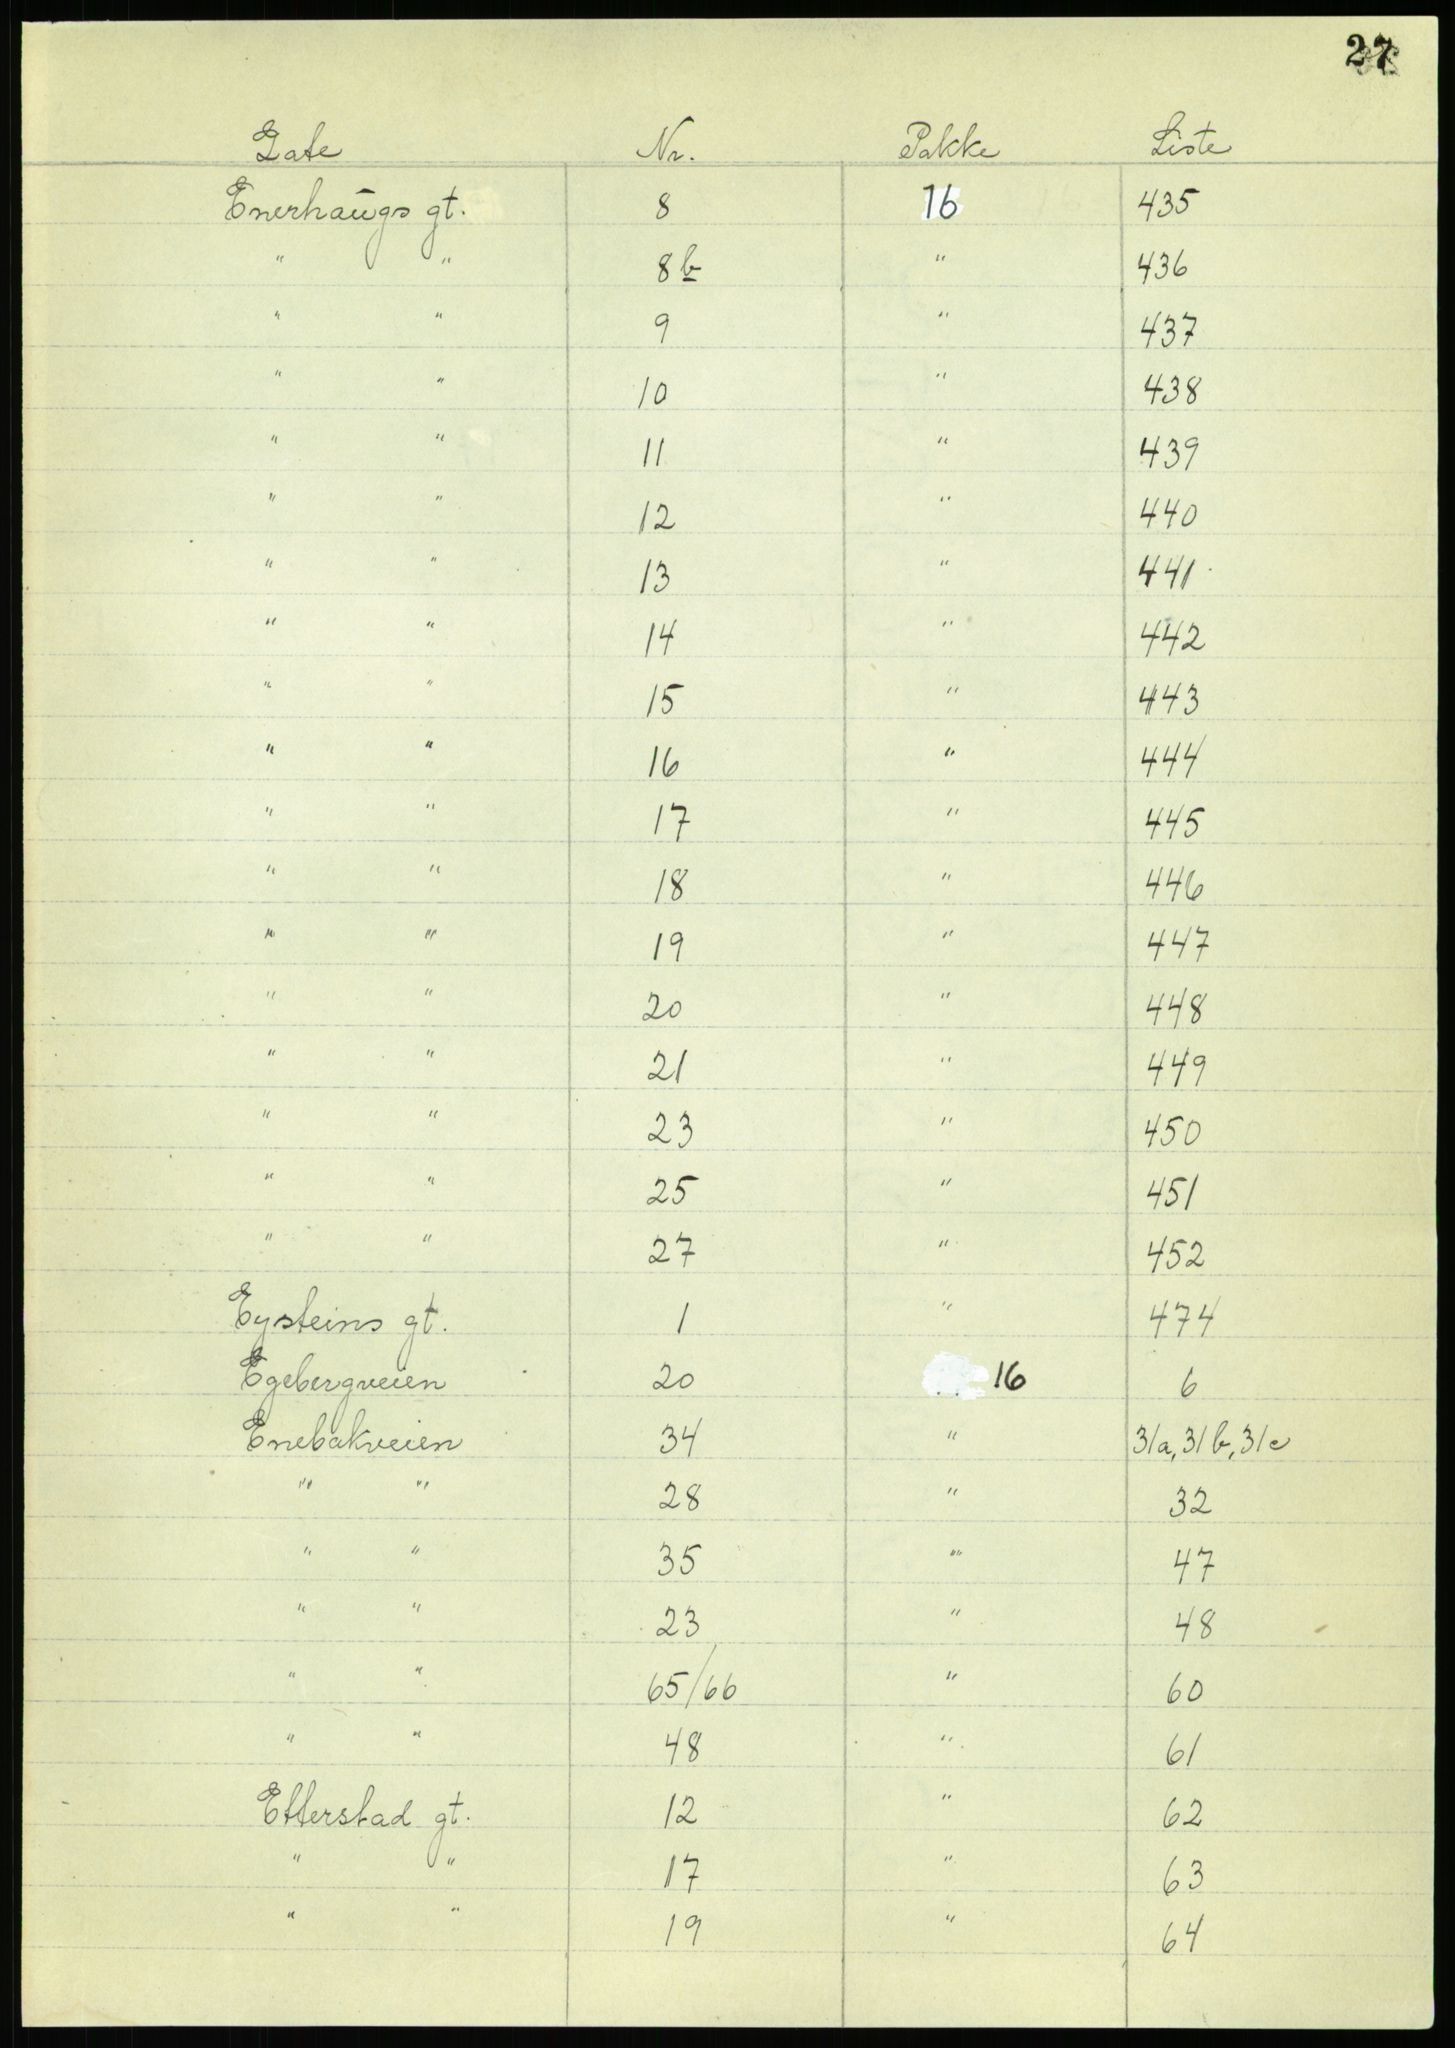 27
Gate Nr. Pakke Liste
Enerhaugs gt. 8 16 435
" " 8b " 436
" " 9 " 437
" " 10 " 438
" " 11 " 439
" " 12 " 440
" " 13 " 441
" " 14 " 442
" " 15 " 443
" " 16 " 444
" " 17 " 445
" " 18 " 446
" " 19 " 447
" " 20 " 448
" " 21 " 449
" " 23 " 450
" " 25 " 451
" " 27 " 452
Eysteins gt. 1 " 474
Egebergveien 20 16 6
Enebakveien 34 " 31a, 31b, 31c
" " 28 " 32
" " 35 " 47
" " 23 " 48
" " 65/66 " 60
" " 48 " 61
Etterstad gt. 12 " 62
" " 17 " 63
" " 19 " 64